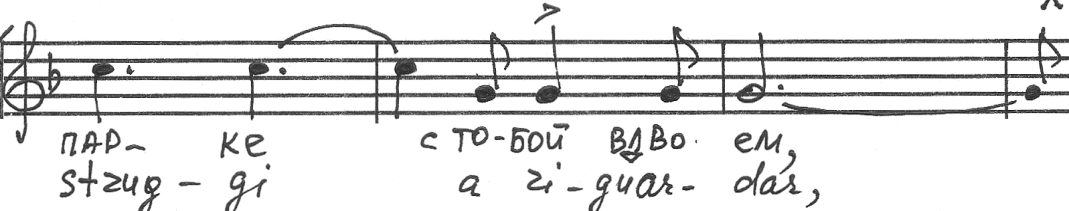 ПАР- КЕ С ТО-БОЙ ВДВО- ЕМ,
strug - gi a ri-guar- dar,